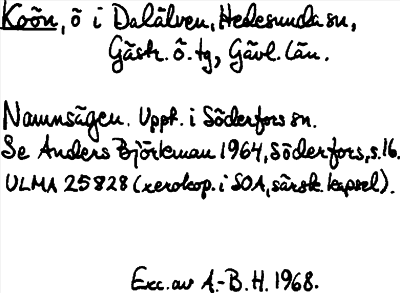 Koön, ö i Dalälven, Hedesunda sn,
Gästr. ö. tg, Gävl. län.
Namnsägen. Uppt. i Söderfors sn.
Se Anders Björkman 1964, Söderfors, s. 16.
ULMA 25828 (xerokop. i SOA, särsk. kapsel).
Exc. av A.-B. H. 1968.